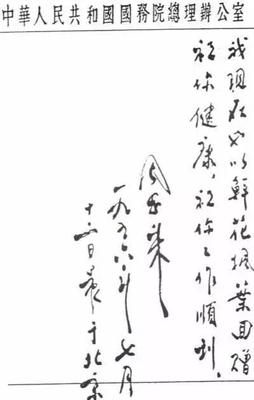 中華人民共和國國務院總理辦公室
我現在也以鮮花楓葉回贈
祝你健康，祝你工作順利．
周恩來
一九五六年七月
日晨于北京